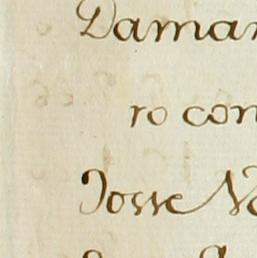 Daman
ro con
Josse N